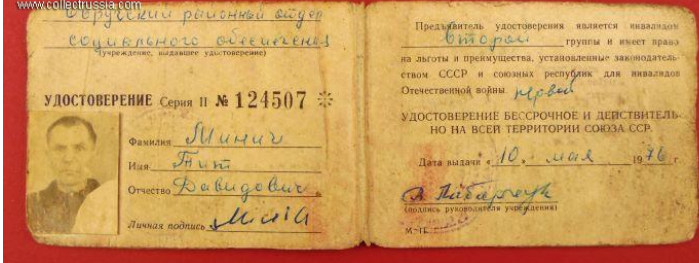 www.collectrussia.com
Овручский районный отдел
социального обеспечения
(учреждение, выдавшее удостоверение)
УДОСТОВЕРЕНИЕ Серия II № 124507
Фамилия Минич
Имя Тит
Отчество Давидович
Личная подпись
Предъявитель удостоверения является инвалидом
второй группы и имеет право
на льготы и преимущества, установленные законодатель-
ством СССР и союзных республик для инвалидов
Отечественной войны. первой
УДОСТОВЕРЕНИЕ БЕССРОЧНОЕ И ДЕЙСТВИТЕЛЬ-
НО НА ВСЕЙ ТЕРРИТОРИИ СОЮЗА ССР.
Дата выдачи « 10. » мая 1976 г.
(подпись руководителя учреждения)